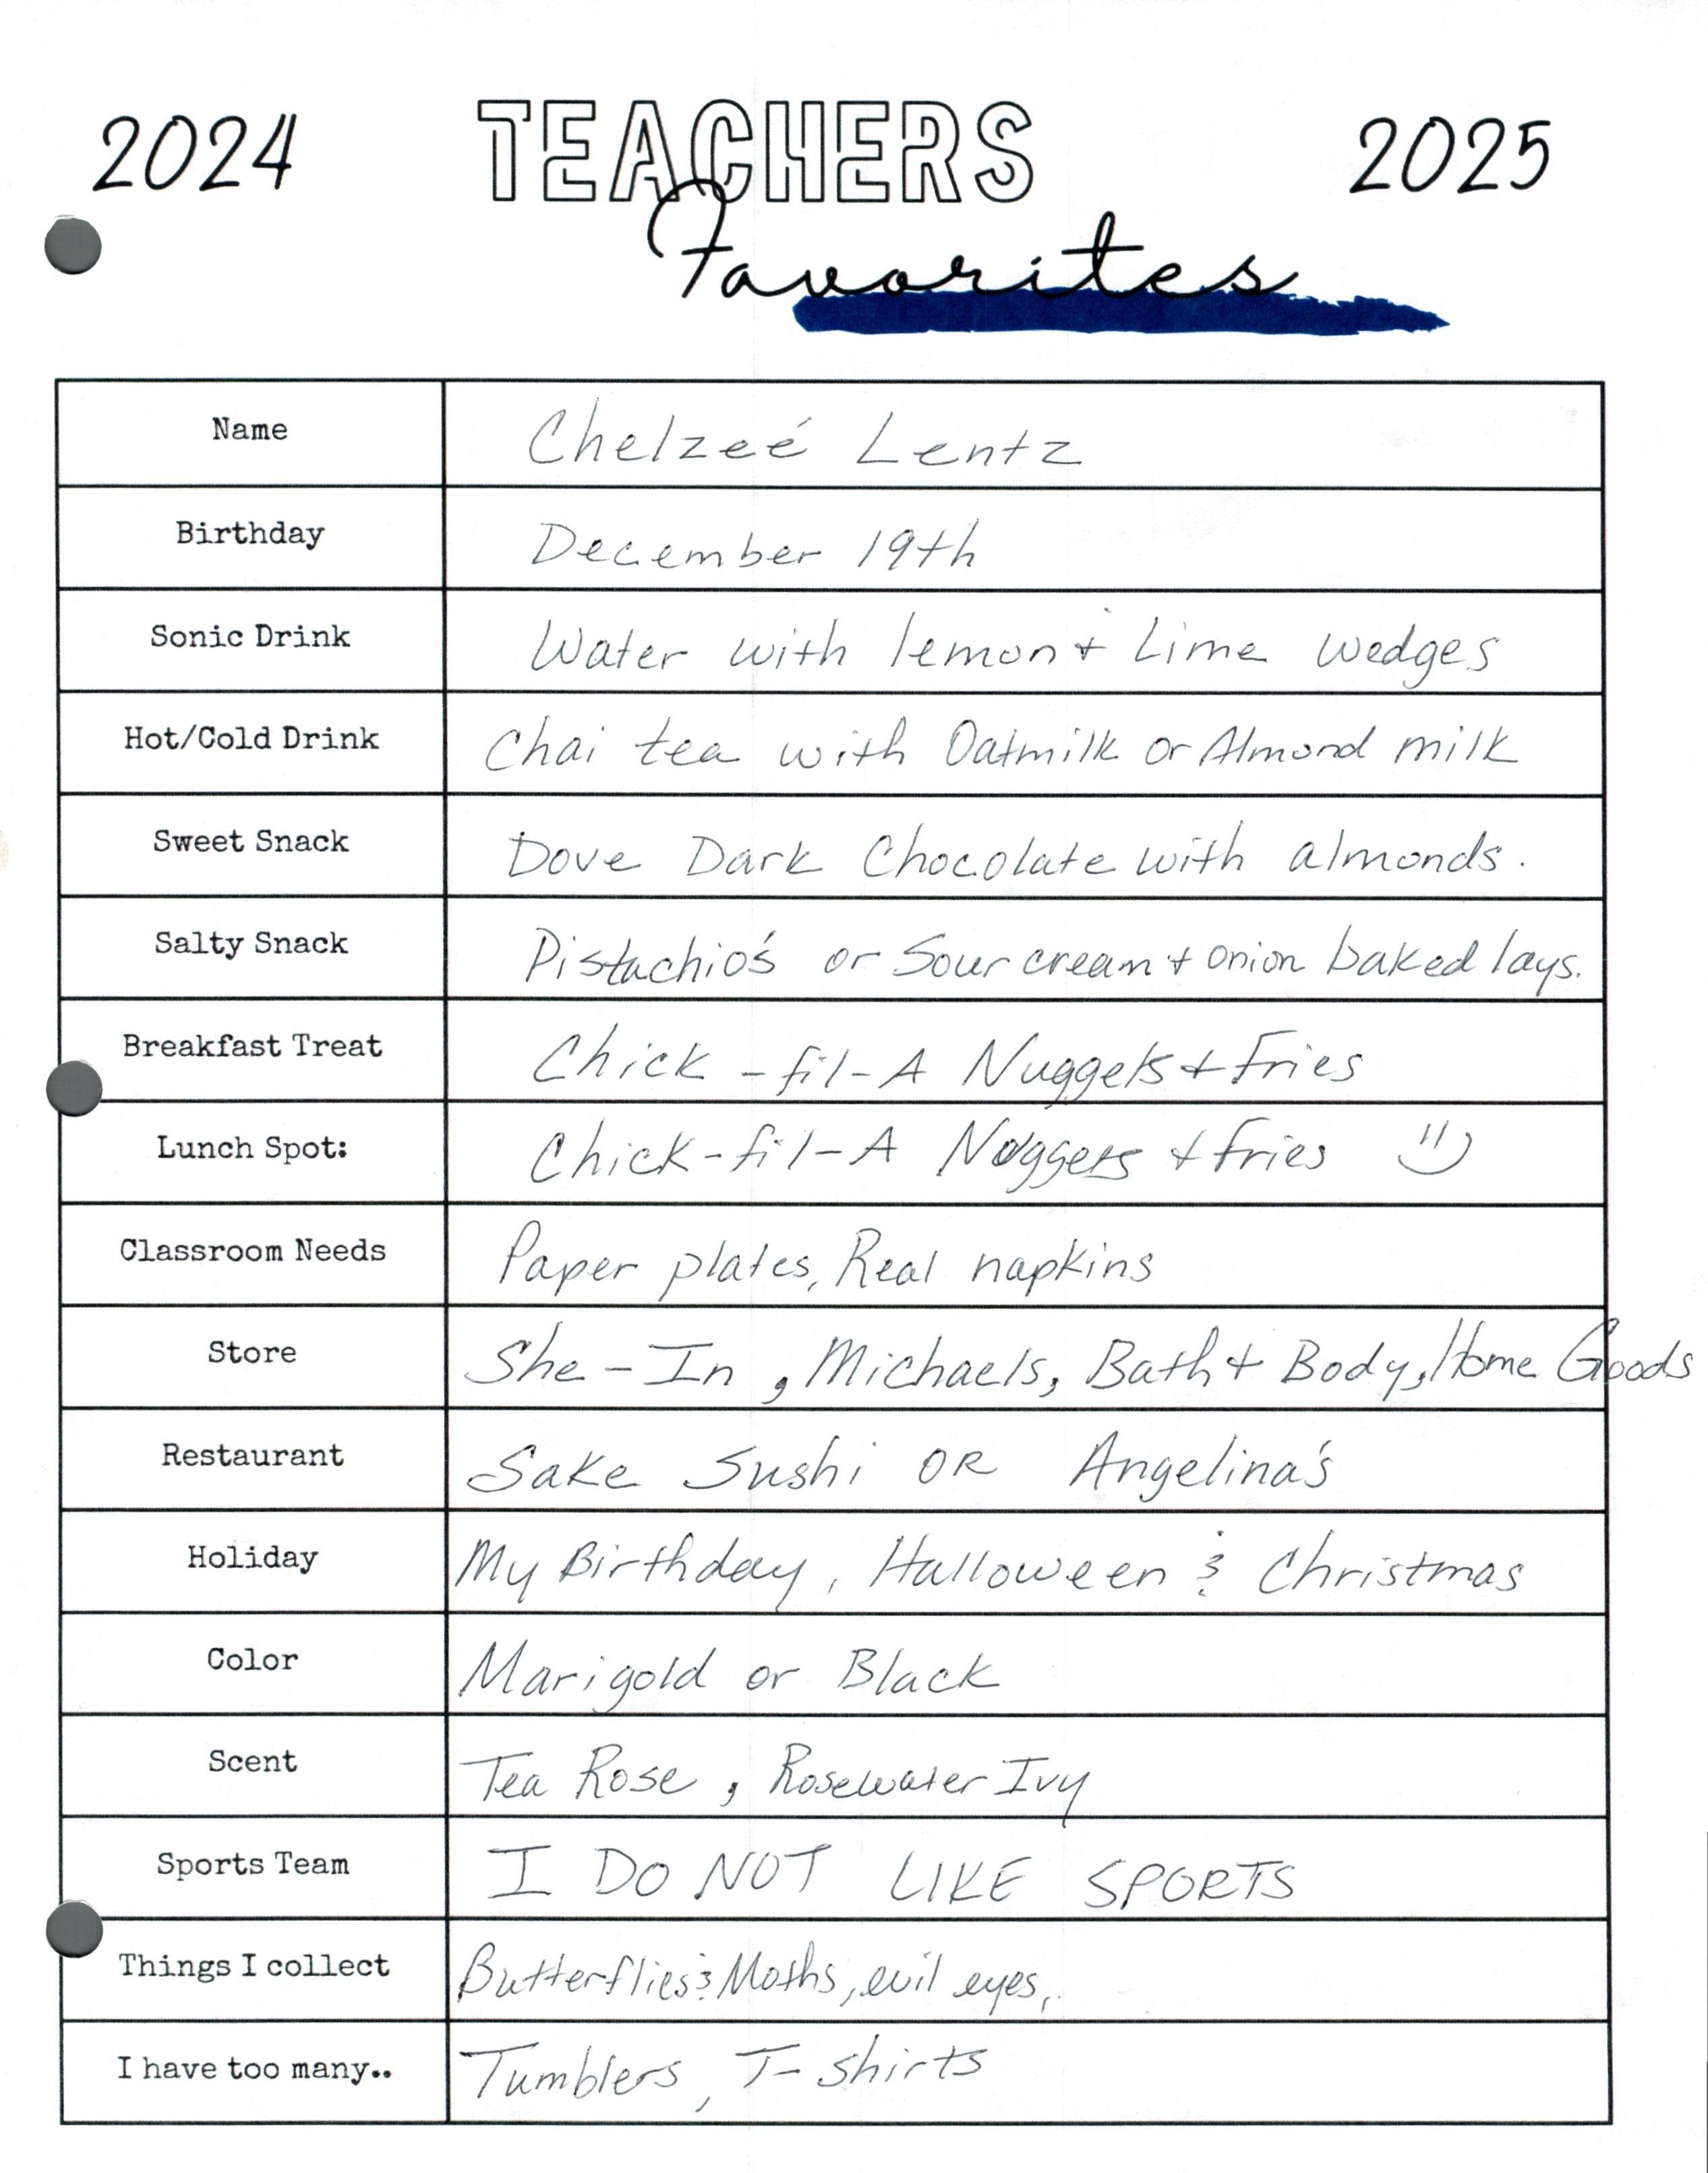 2024 TEACHERS 2025
Favorites
Name Chelzeé Lentz
Birthday December 19th
Sonic Drink Water with lemon + Lime wedges
Hot/Cold Drink Chai tea with Oatmilk or Almond milk
Sweet Snack Dove Dark Chocolate with almonds.
Salty Snack Pistachio's or Sour cream + onion baked lays.
Breakfast Treat Chick-fil-A Nuggets + Fries
Lunch Spot: Chick-fil-A Nuggets + Fries
Classroom Needs Paper plates, Real napkins
Store She-In, Michaels, Bath + Body, Home Goods
Restaurant Sake Sushi OR Angelina's
Holiday My Birthday, Halloween & Christmas
Color Marigold or Black
Scent Tea Rose, Rosewater Ivy
Sports Team I DO NOT LIKE SPORTS
Things I collect Butterflies & Moths, evil eyes,
I have too many.. Tumblers, T-shirts